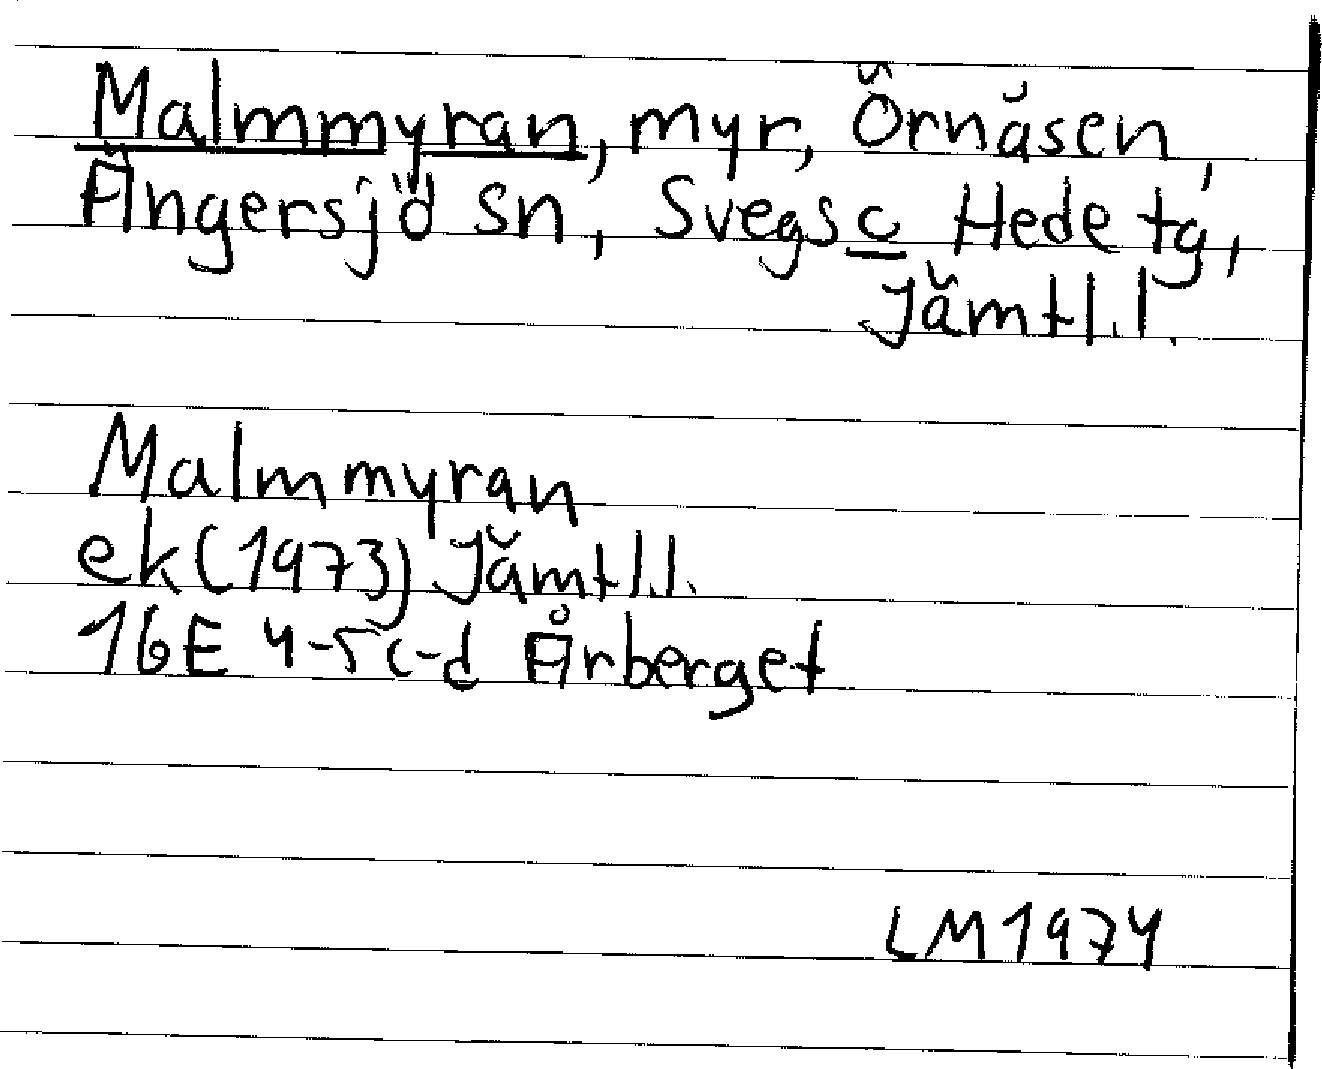 Malmmyran, myr, Örnåsen,
Ängersjö sn, Svegs c Hede tg,
Jämtl.l.
Malmmyran
ek (1973) Jämtl.l.
16E 4-5 c-d Årberget
LM 1974